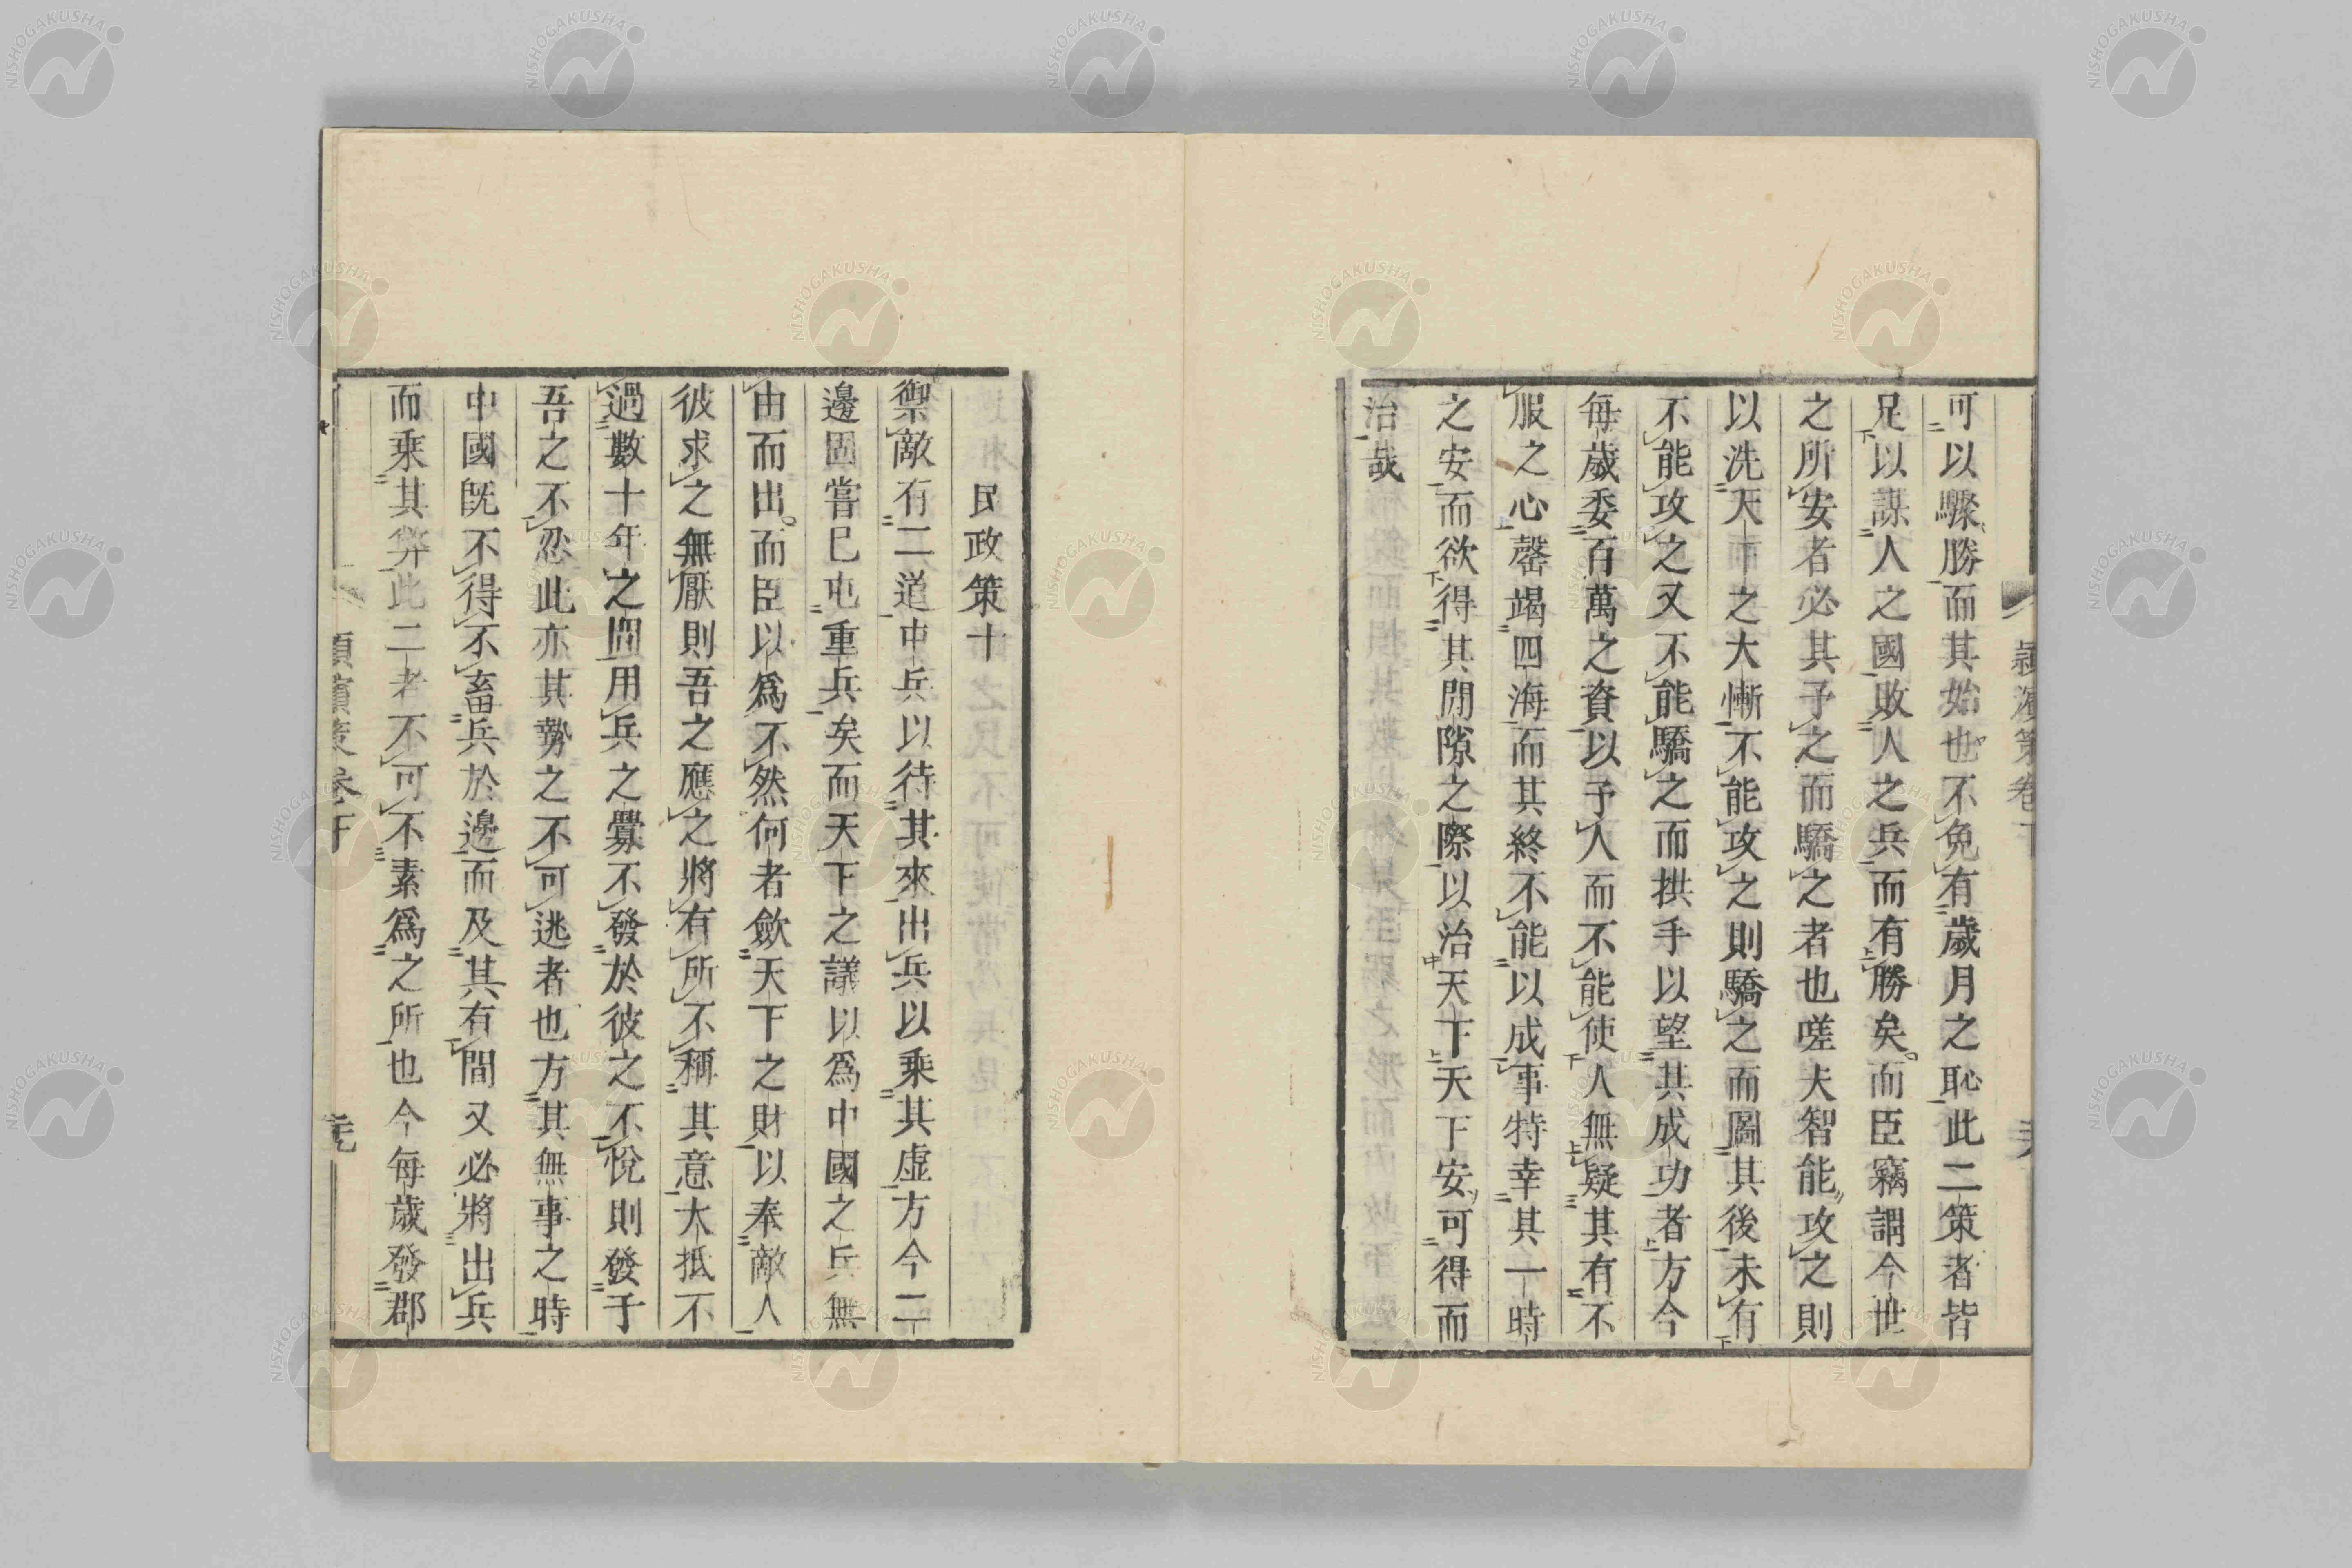 可以驟勝而其始也不免有歲月之恥此二策者皆
足以謀人之國敗人之兵而有勝矣而臣竊謂今世
之所安者必其予之而驕之者也嗟夫智能攻之則
以洗天下之大慚不能攻之則驕之而圖其後未有
不能攻之又不能驕之而拱手以望其成功者方今
每歲委百萬之資以予人而不能使人無疑其有不
服之心罄竭四海而其終不能以成事特幸其一時
之安而欲得其閒隙之際以治天下天下安可得而
治哉
民政策十
禦敵有二道中兵以待其來出兵以乘其虛方今二
邊固嘗已屯重兵矣而天下之議以為中國之兵無
由而出而臣以為不然何者斂天下之財以奉敵人
彼求之無厭則吾之應之將有所不稱其意大抵不
過數十年之間用兵之釁不發於彼之不悅則發于
吾之不忍此亦其勢之不可逃者也方其無事之時
中國旣不得不畜兵於邊而及其有間又必將出兵
而乘其弊此二者不可不素爲之所也今每歲發郡
潁濱策卷下
NISHOGAKUSHA